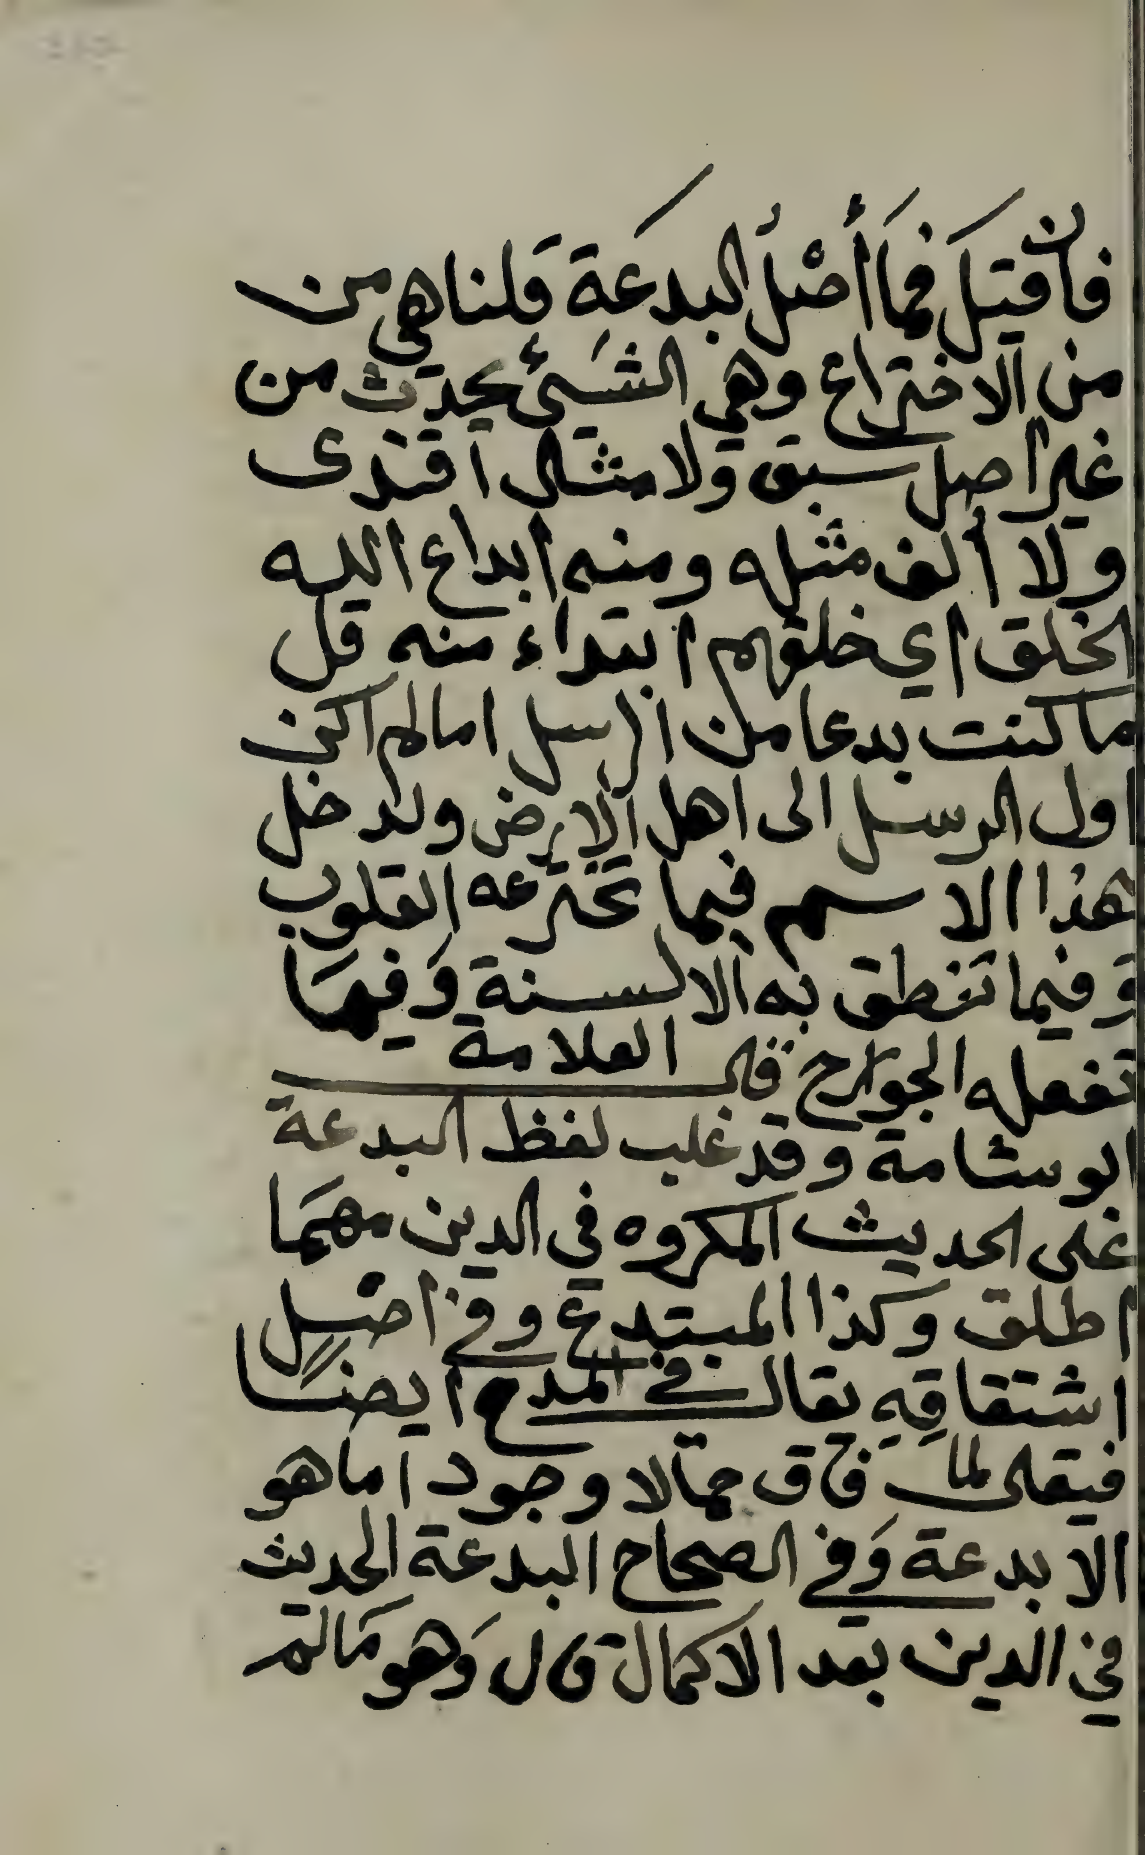 فان قيل فما أصل البدعة قلنا هي من
من الاختراع وهي الشيئ يحدث من
غير اصل سبق ولا مثال اقتدى
ولا ألف مثله ومنه ابداع الله
الخلق اي خلقهم ابتداء منه قل
ما كنت بدعا من الرسل امالم اكن
اول الرسل الى اهل الارض ولد خل
بهذا الاسم فيما تخترعه القلوب
وفيما تنطق به الالسنة وفيما
تفعله الجوارح قال العلامة
ابو شامة وقد غلب لفظ البدعة
على الحديث المكروه في الدين مهما
اطلق وكذا المبتدع وفي اصل
اشتقاقه يقال في المدح ايضا
فيقال لما فاق جمالا وجود اما هو
الا بدعة وفي الصحاح البدعة الحديث
في الدين بعد الاكمال قال وهو مالم